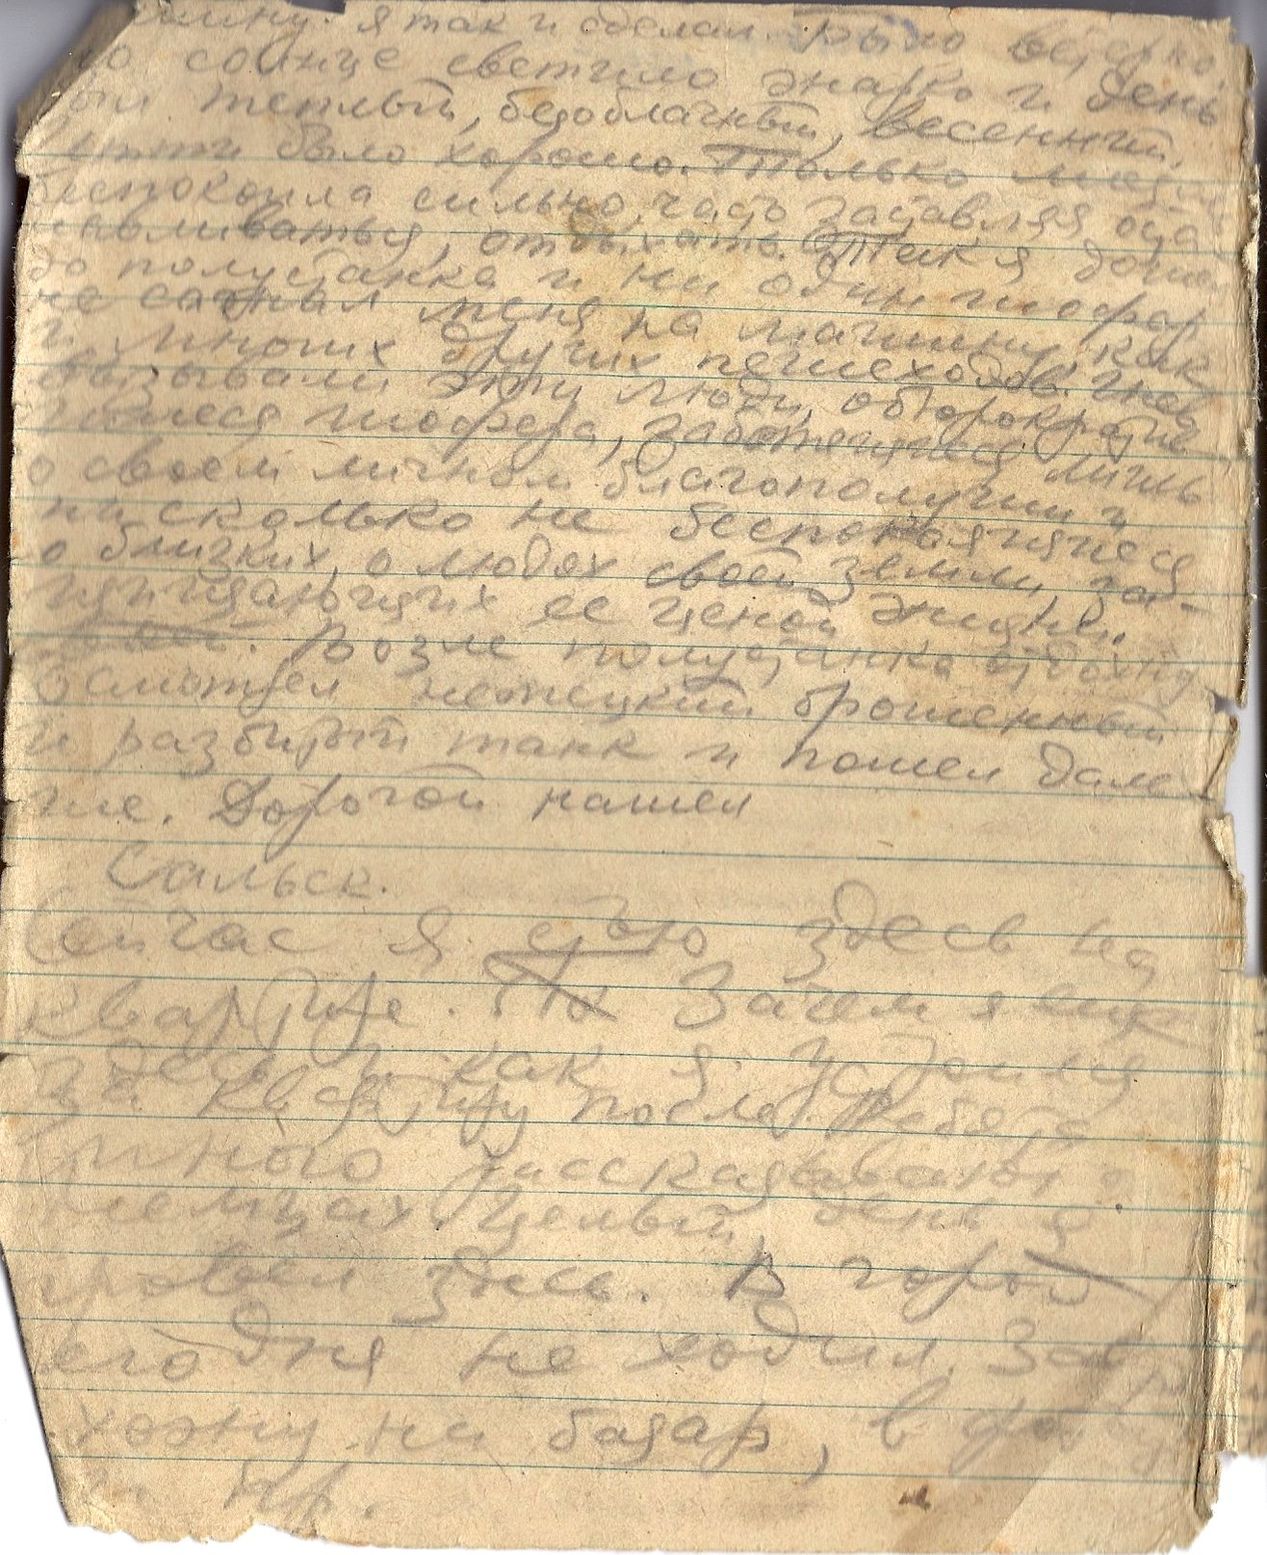 шину. я так и сделал. Было ветрено
но солнце светило жарко и день
был теплый, безоблачный, весенний.
Итти было хорошо. Только
беспокоила сильно, часто заставляя оста
навливаться, отдыхать. Так я дошел
до полустанка и ни один шофер
не сагнал меня на машину, как
и многих других пешеходов. Гнев
вызывали эти люди, обюрократив
шиеся шофера, заботящиеся лишь
о своем личном благополучии и
нисколько не беспокоящиеся
о близких, о людях своей земли, за-
щищающих ее ценой жизни.
Возле полустанка отдохнул
осмотрел немецкий брошенный
и разбитый танк и пошел даль
ше. Дорогой нашел
Сальск.
Сейчас я стою здесь на
квартире. Зачем я еще
здесь и как я устроился
на квартиру после. Ребята
много рассказывают о
немцах. Целый день я
провел здесь. В город
сегодня не ходил. Зав
хожу на базар, в